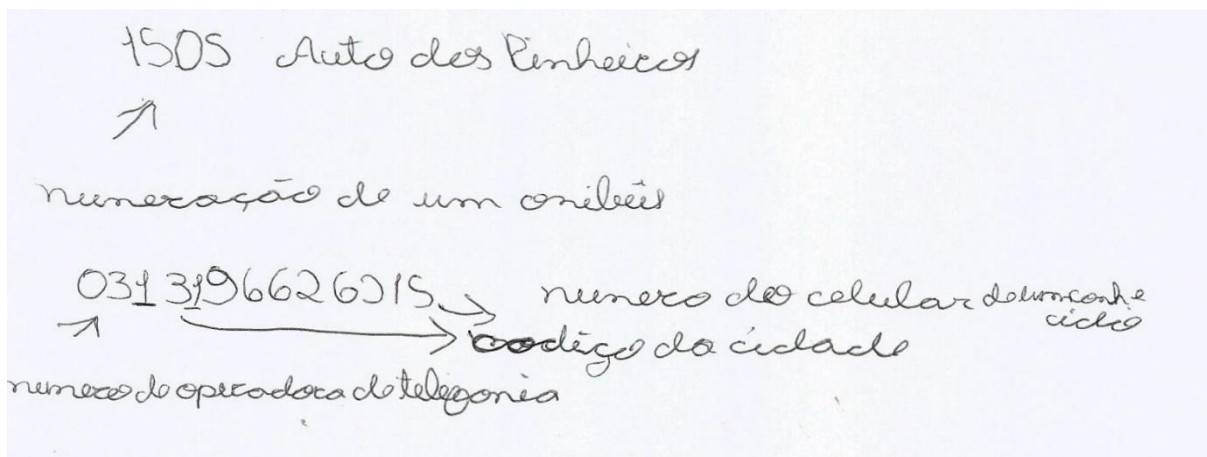 1505 Auto dos Pinheiros
numeração de um onibûs
031 3196626915 numero do celular de um conhe
cido
codigo da cidade
numero de operadora de telefonia